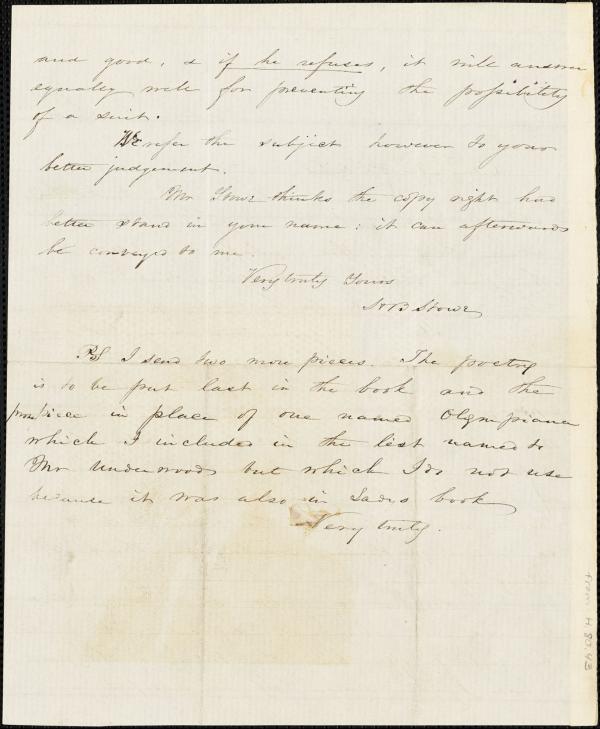 and good, & if he refuses, it will answer
equally well for preventing the possibility
of a suit.
We refer the subject however to your
better judgement.
Mr Stowe thinks the copy right had
better stand in your name: it can afterwards
be conveyed to me.
Very truly Yours
H B Stowe
PS I send two more pieces. The poetry
is to be put last in the book and the
prose piece in place of one named Olympiana
which I included in the list named to
Mr Underwood but which I do not use
because it was also in book
Very truly.
from H.80.43